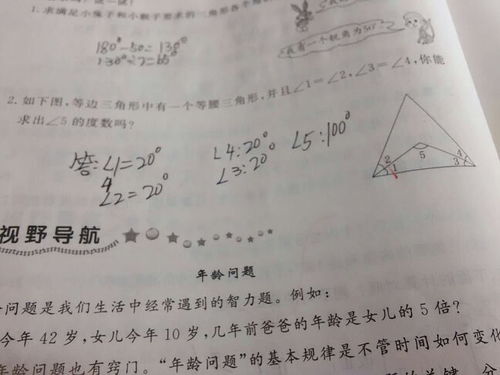 1. 求满足小兔子和小猴子要求的三角形各个角
180°-50=130°
130÷2=65
我有一个锐角为50°
2. 如下图,等边三角形中有一个等腰三角形,并且∠1=∠2,∠3=∠4,你能
求出∠5的度数吗?
答:∠1=20° ∠4:20° ∠5:100°
∠2=20° ∠3:20°
2 1 5 4 3
视野导航
年龄问题
问题是我们生活中经常遇到的智力题。例如:
今年 42 岁,女儿今年 10 岁,几年前爸爸的年龄是女儿的 5 倍?
年龄问题也有窍门。“年龄问题”的基本规律是不管时间如何变化